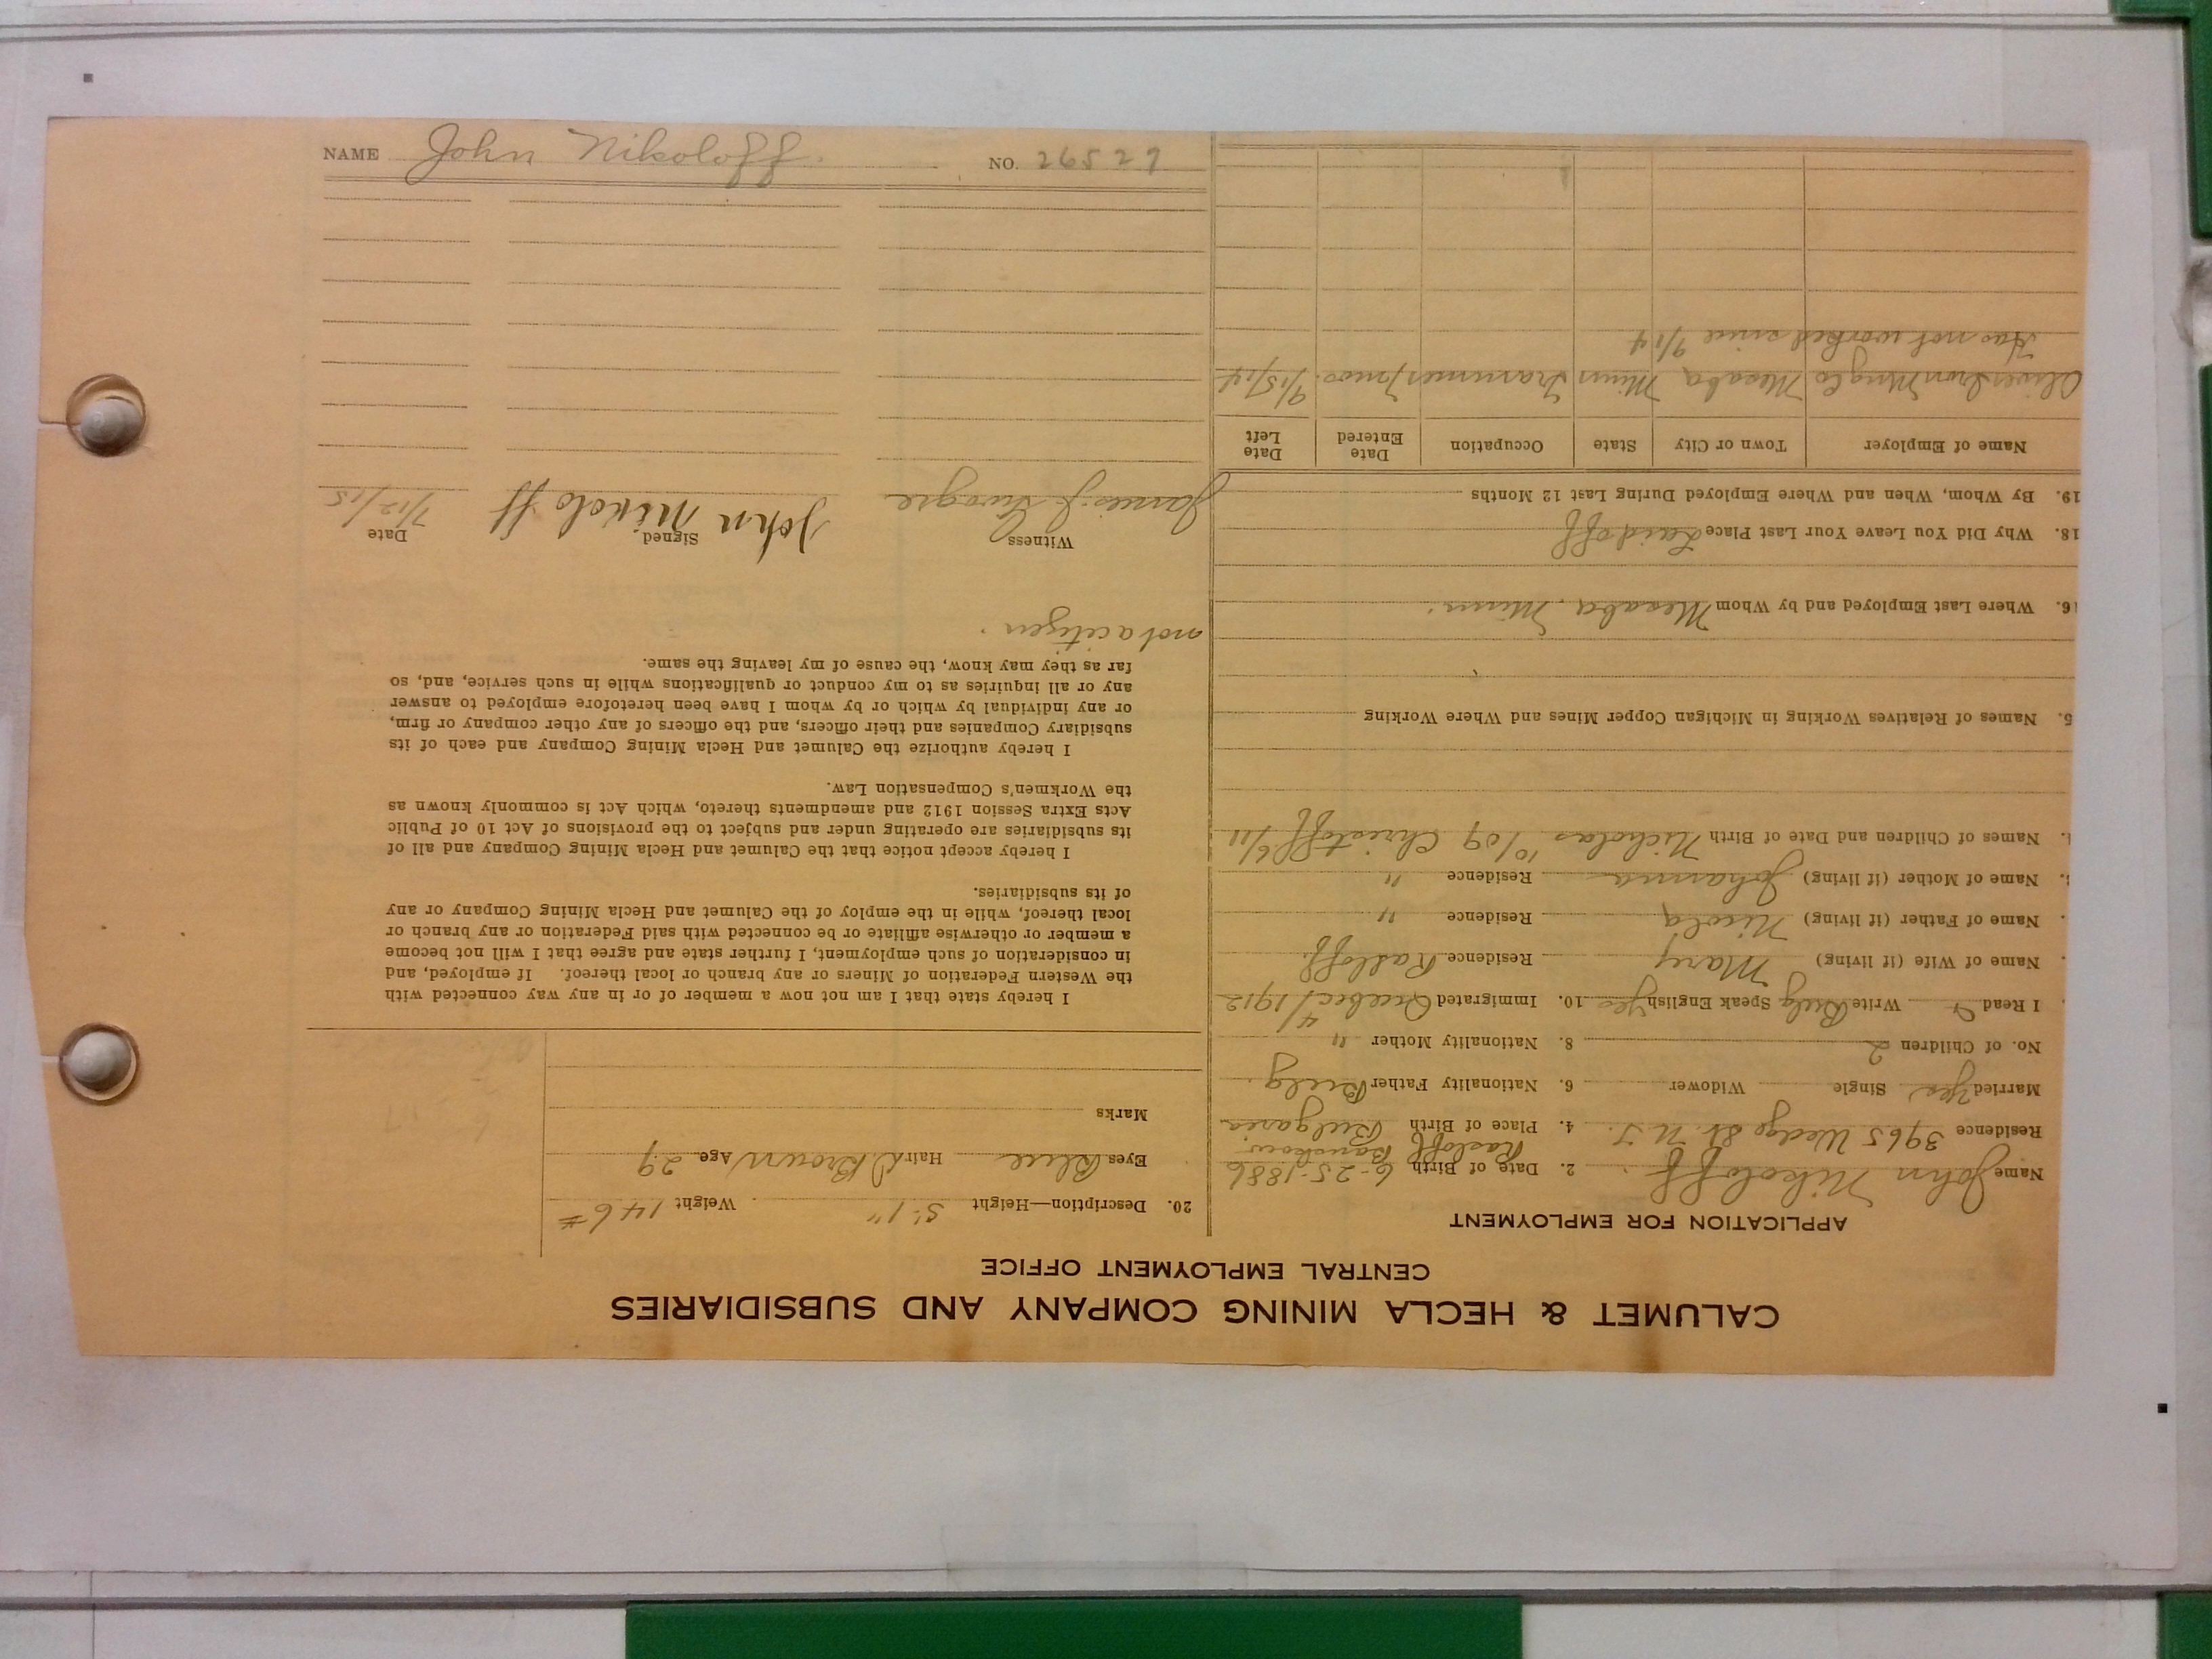 CALUMET & HECLA MINING COMPANY AND SUBSIDIARIES
CENTRAL EMPLOYMENT OFFICE
APPLICATION FOR EMPLOYMENT
Name John Nikoloff 2. Date of Birth 6-25-1886
Residence 3965 Wedge St. N.T. 4. Place of Birth Rasloff Bulgaria
Married Yes Single Widower 6. Nationality Father Bulg.
No. of Children 2 8. Nationality Mother "
I Read & Write Bulg Speak English Yes 10. Immigrated Quebec 4/1912
Name of Wife (if living) Mary Residence Rasloff.
Name of Father (if living) Nicola Residence "
Name of Mother (if living) Johanna Residence "
Names of Children and Date of Birth Nicholas 10/09 Christoff 6/11
5. Names of Relatives Working in Michigan Copper Mines and Where Working
16. Where Last Employed and by Whom Mesaba, Minn.
18. Why Did You Leave Your Last Place Laid off
19. By Whom, When and Where Employed During Last 12 Months
Name of Employer Town or City State Occupation Date Entered Date Left
Oliver Iron Mng Co Mesaba Minn Trammer 7 mos. 9/15/14
Has not worked since 9/14
20. Description—Height 5'-1" Weight 146 #
Eyes Blue Hair D. Brown Age 29
Marks
I hereby state that I am not now a member of or in any way connected with
the Western Federation of Miners or any branch or local thereof. If employed, and
in consideration of such employment, I further state and agree that I will not become
a member or otherwise affiliate or be connected with said Federation or any branch or
local thereof, while in the employ of the Calumet and Hecla Mining Company or any
of its subsidiaries.
I hereby accept notice that the Calumet and Hecla Mining Company and all of
its subsidiaries are operating under and subject to the provisions of Act 10 of Public
Acts Extra Session 1912 and amendments thereto, which Act is commonly known as
the Workmen's Compensation Law.
I hereby authorize the Calumet and Hecla Mining Company and each of its
subsidiary Companies and their officers, and the officers of any other company or firm,
or any individual by which or by whom I have been heretofore employed to answer
any or all inquiries as to my conduct or qualifications while in such service, and, so
far as they may know, the cause of my leaving the same.
not a citizen.
Witness Signed Date
James J. John Nikoloff 7/12/15
NAME John Nikoloff. NO. 26527